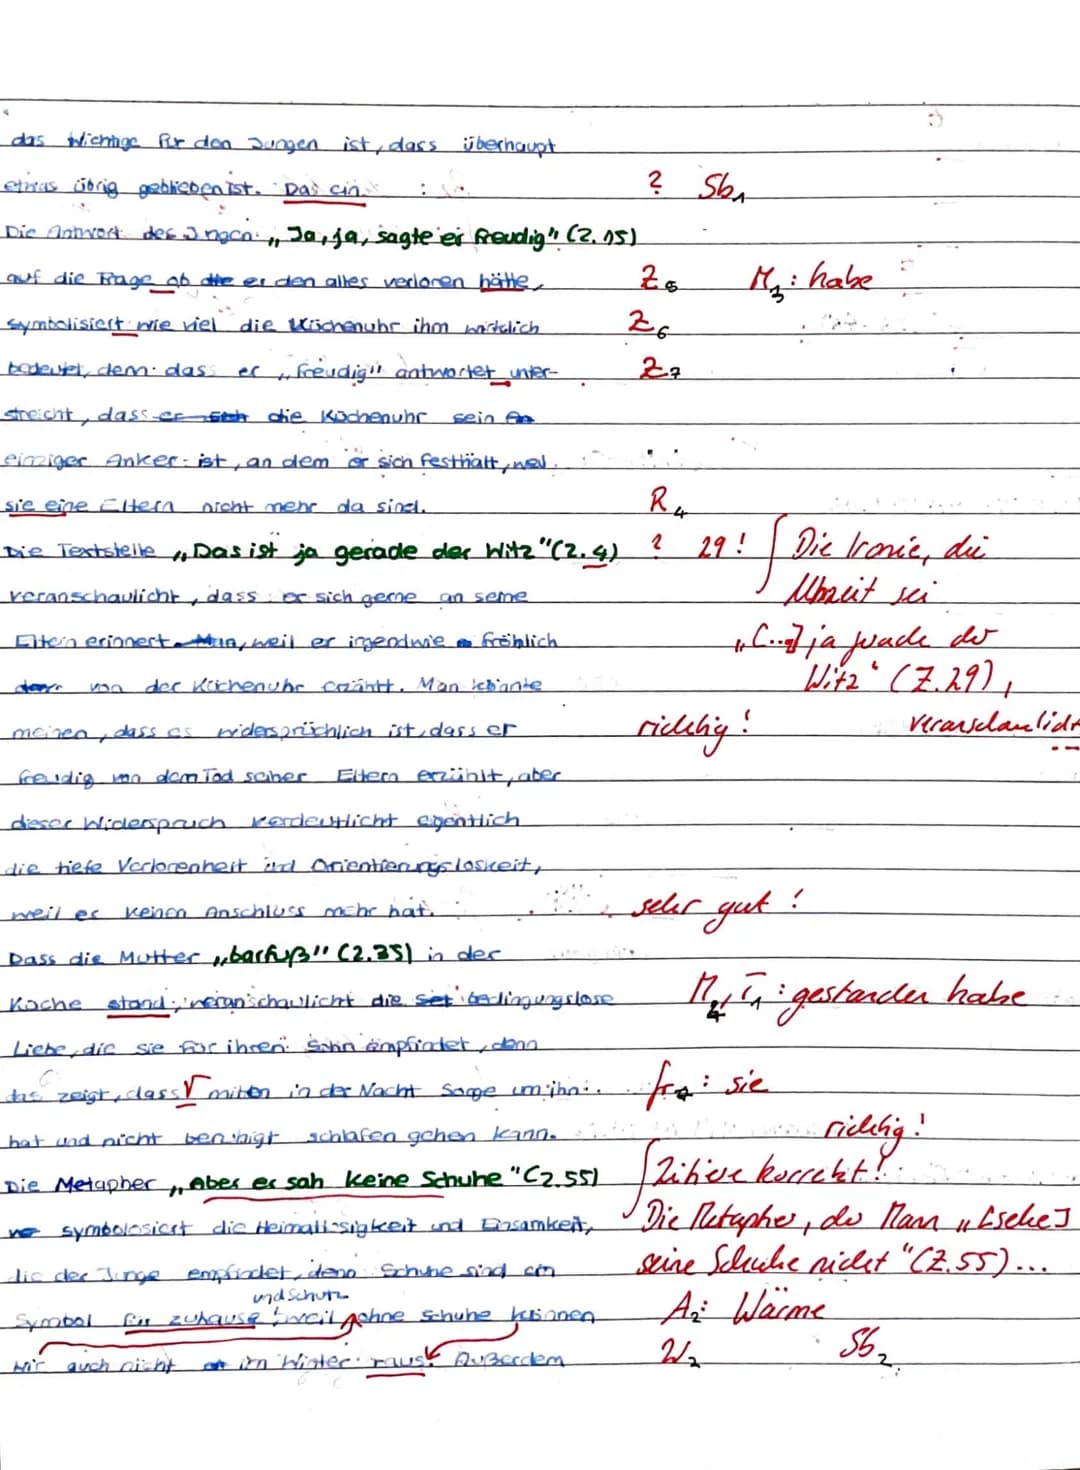 das Wichtige für den Jungen ist, dass überhaupt
etwas übrig geblieben ist. Das ein
? Sb1
Die Antwort des Jungen „Ja, ja, sagte er freudig" (Z. 15)
auf die Frage ob die er den alles verloren hätte,
Z5 M3: habe
symbolisiert wie viel die Küchenuhr ihm wirklich
Z6
bedeutet, dem dass er „freudig" antwortet unter-
Z7
streicht, dass er sich die Küchenuhr sein
einziger Anker ist, an dem er sich festhält, weil
sie eine Eltern nicht mehr da sind.
R4
Die Textstelle „Das ist ja gerade der Witz" (Z. 4)
? 29! Die Ironie, die
veranschaulicht, dass er sich gerne an seine
Uhrzeit sei
Eltern erinnert, weil er irgendwie fröhlich
„[...] ja gerade der
von der Küchenuhr erzählt. Man könnte
Witz" (Z. 29),
meinen, dass es widersprüchlich ist, dass er
richtig! veranschaulicht
freudig von dem Tod seiner Eltern erzählt, aber
dieser Widerspruch verdeutlicht eigentlich
die tiefe Verlorenheit und Orientierungsloskeit,
weil er keinen Anschluss mehr hat.
sehr gut!
Dass die Mutter „barfuß" (Z. 35) in der
Küche stand, veranschaulicht die bedingungslose
M4, T1: gestanden habe
Liebe, die sie für ihren Sohn empfindet, denn
das zeigt, dass √ mitten in der Nacht Sorge um ihn
sie
hat und nicht beruhigt schlafen gehen kann.
richtig!
Die Metapher „Aber er sah keine Schuhe" (Z. 55)
Zitiere korrekt!
symbolosiert die Heimatlosigkeit und Einsamkeit,
Die Metapher, der Mann „[sehe]
die der Junge empfindet, denn Schuhe sind ein
seine Schuhe nicht" (Z. 55)...
und Schutz
Symbol für zuhause, weil ohne Schuhe können
A2: Wärme
wir auch nicht im Winter raus. Außerdem
W2 Sb2